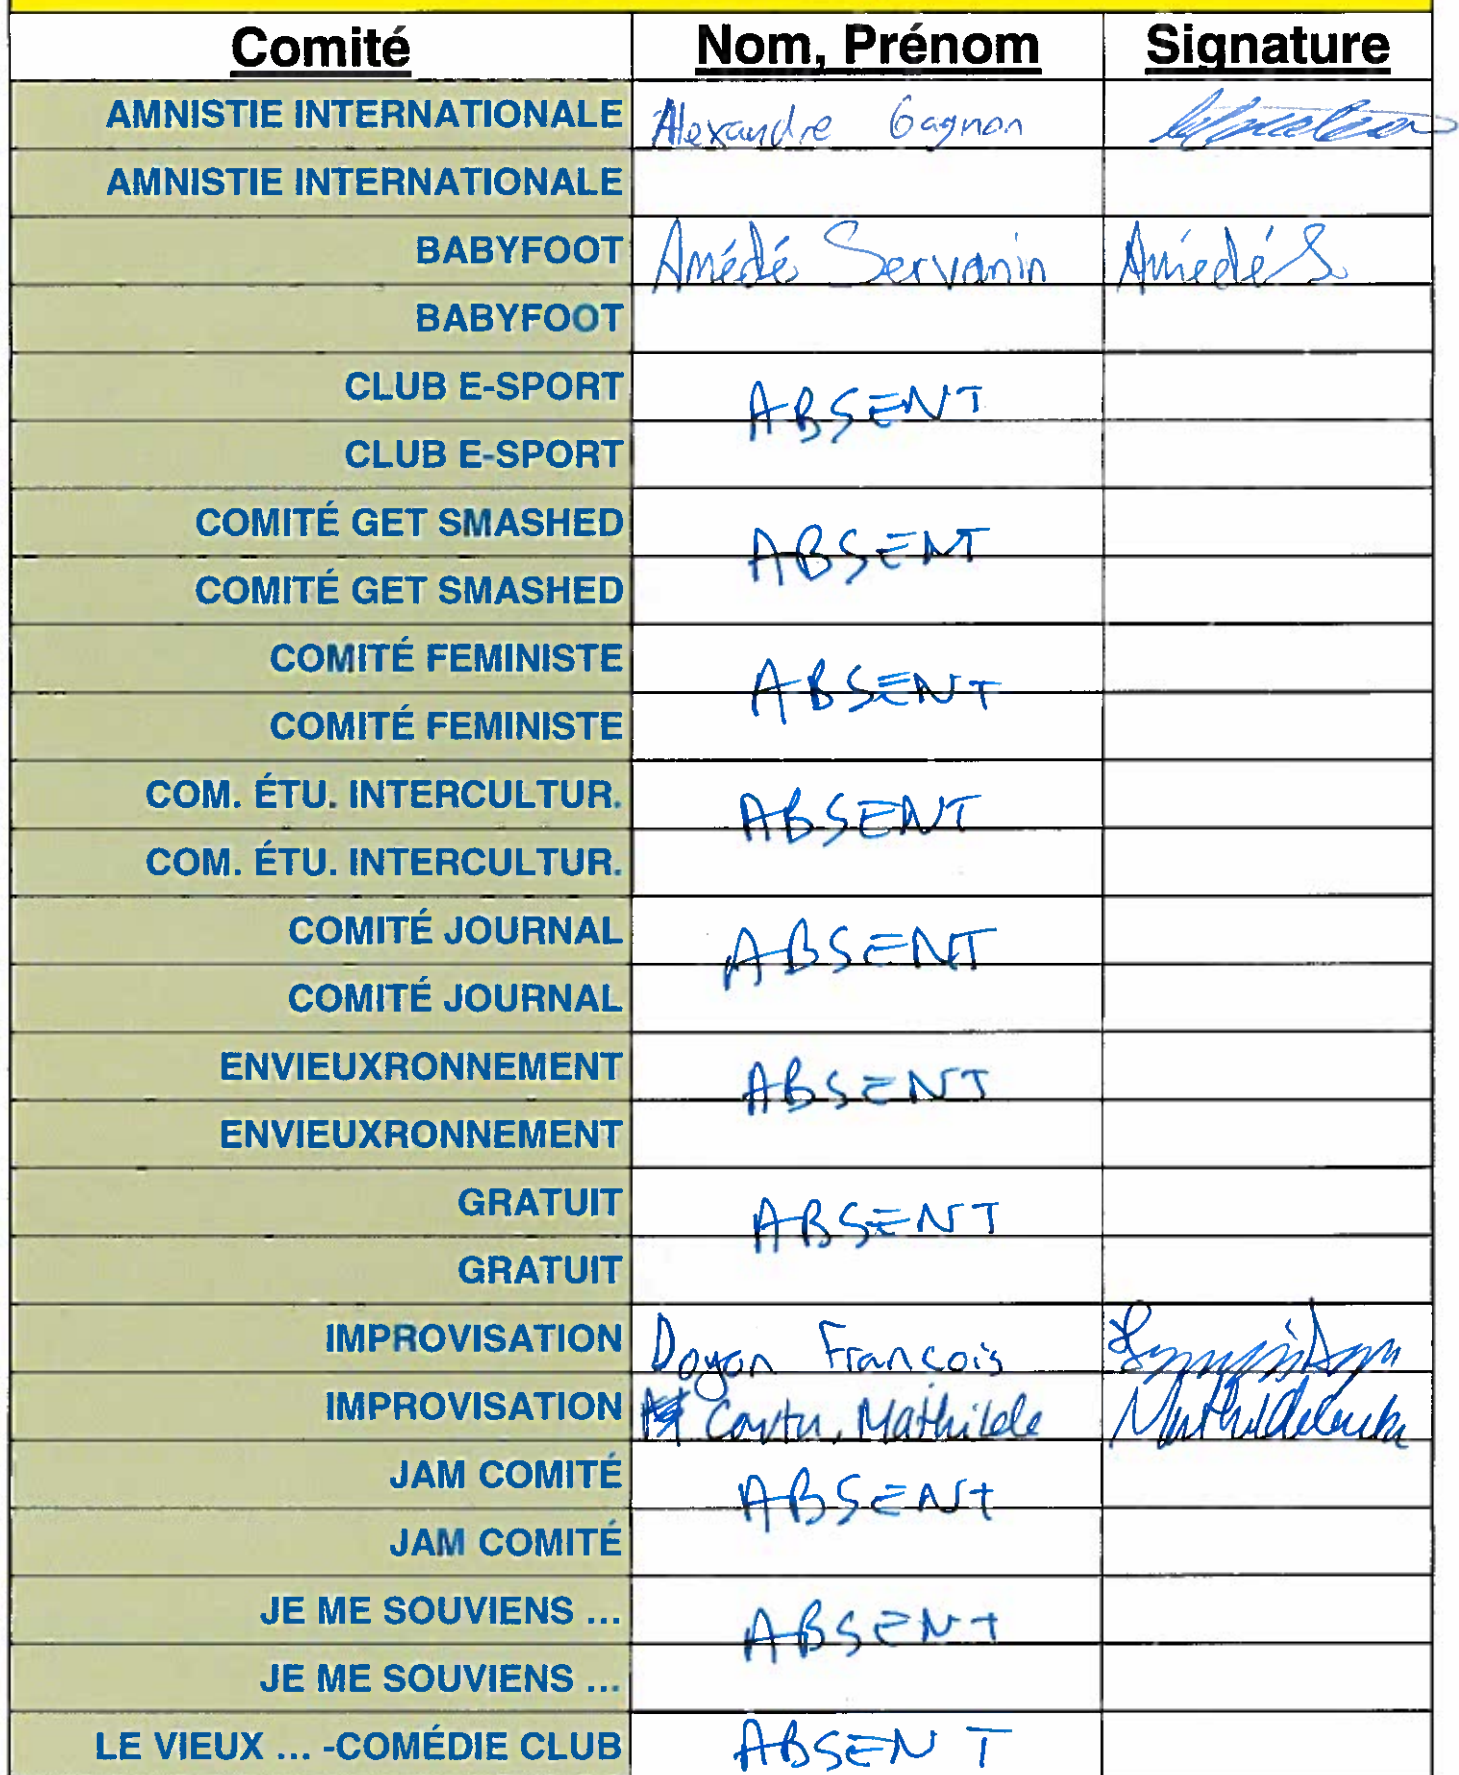 Comité Nom, Prénom Signature
AMNISTIE INTERNATIONALE Alexandre Gagnon
AMNISTIE INTERNATIONALE
BABYFOOT Amédé Servanin Amédé S.
BABYFOOT
CLUB E-SPORT ABSENT
CLUB E-SPORT
COMITÉ GET SMASHED ABSENT
COMITÉ GET SMASHED
COMITÉ FEMINISTE ABSENT
COMITÉ FEMINISTE
COM. ÉTU. INTERCULTUR. ABSENT
COM. ÉTU. INTERCULTUR.
COMITÉ JOURNAL ABSENT
COMITÉ JOURNAL
ENVIEUXRONNEMENT ABSENT
ENVIEUXRONNEMENT
GRATUIT ABSENT
GRATUIT
IMPROVISATION Doyon François
IMPROVISATION Mathilde
JAM COMITÉ ABSENT
JAM COMITÉ
JE ME SOUVIENS ... ABSENT
JE ME SOUVIENS ...
LE VIEUX ... -COMÉDIE CLUB ABSENT